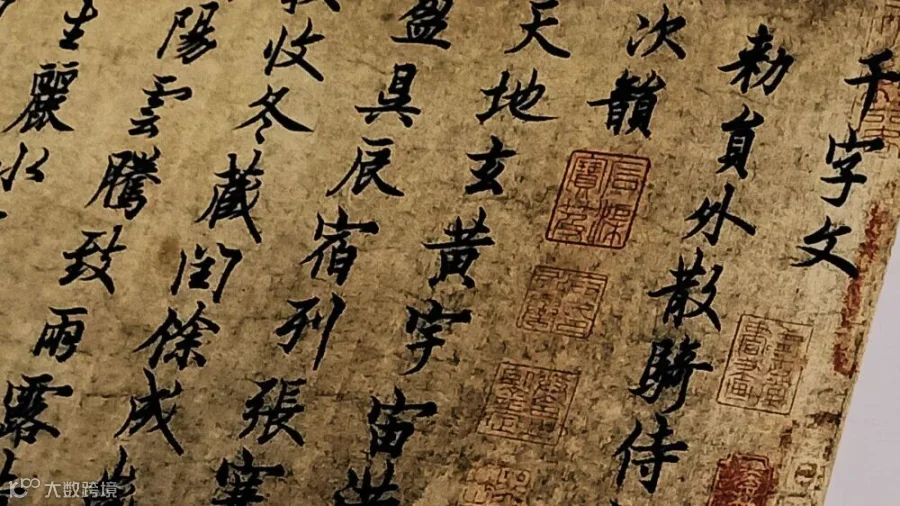 千字文
勑員外散騎侍
次韻
天地玄黃宇宙洪
盈昃辰宿列張寒
收冬藏閏餘成歲
陽雲騰致雨露
生麗水
大数跨境